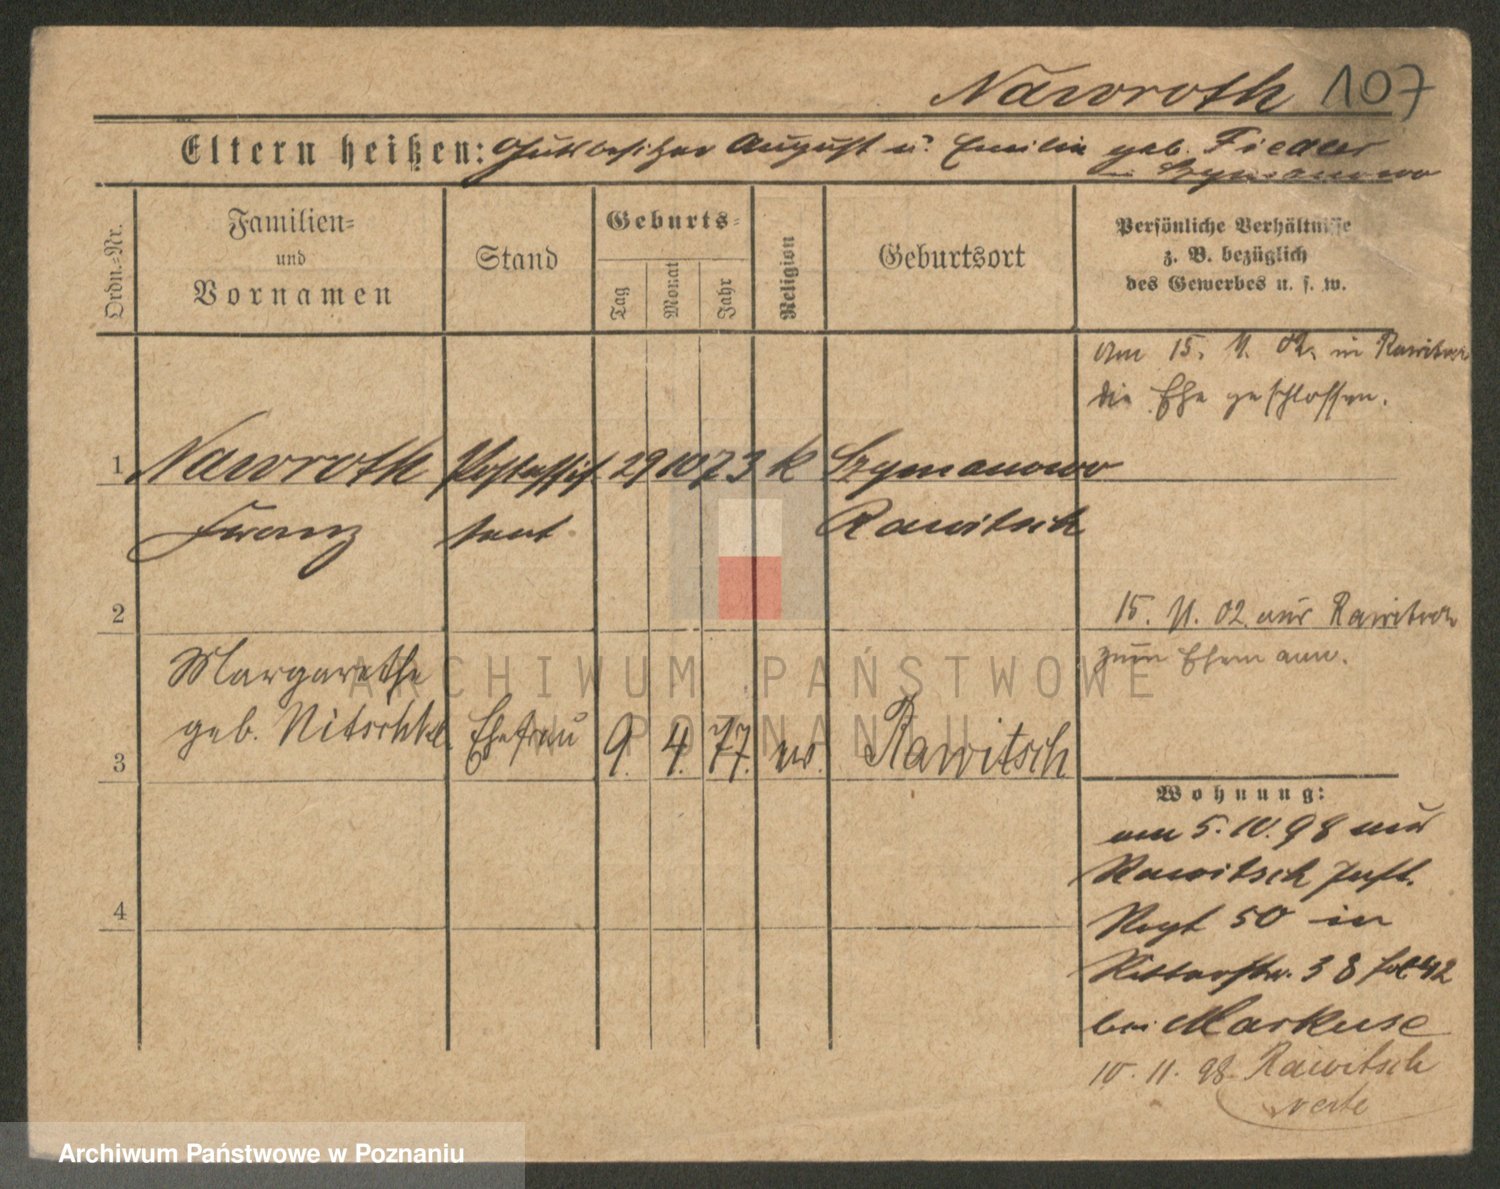 Nawroth 107
Eltern heißen: Gutsbesitzer August u. Emilie geb. Fiedler
in Szymanowo
Ordn.-Nr.
Familien-
und
Vornamen
Stand
Geburts-
Tag
Monat
Jahr
Religion
Geburtsort
Persönliche Verhältnisse
z. B. bezüglich
des Gewerbes u. s. w.
Am 15. 11. 02. in Rawitsch
die Ehe geschlossen.
1 Nawroth Postassis 29 10 73 k Szymanowo
Franz tent Rawitsch
2
15. 11. 02 aus Rawitsch
zum Ehemann.
Margarethe
geb. Nitschke. Ehefrau 9. 4. 77. ev. Rawitsch
3
Wohnung:
am 5. 10. 98 aus
Rawitsch Inft.
Regt 50 in
4
Ritterstr. 38
bei Markuse
10. 11. 98 Rawitsch
verte
ARCHIWUM PAŃSTWOWE
W POZNANIU
Archiwum Państwowe w Poznaniu